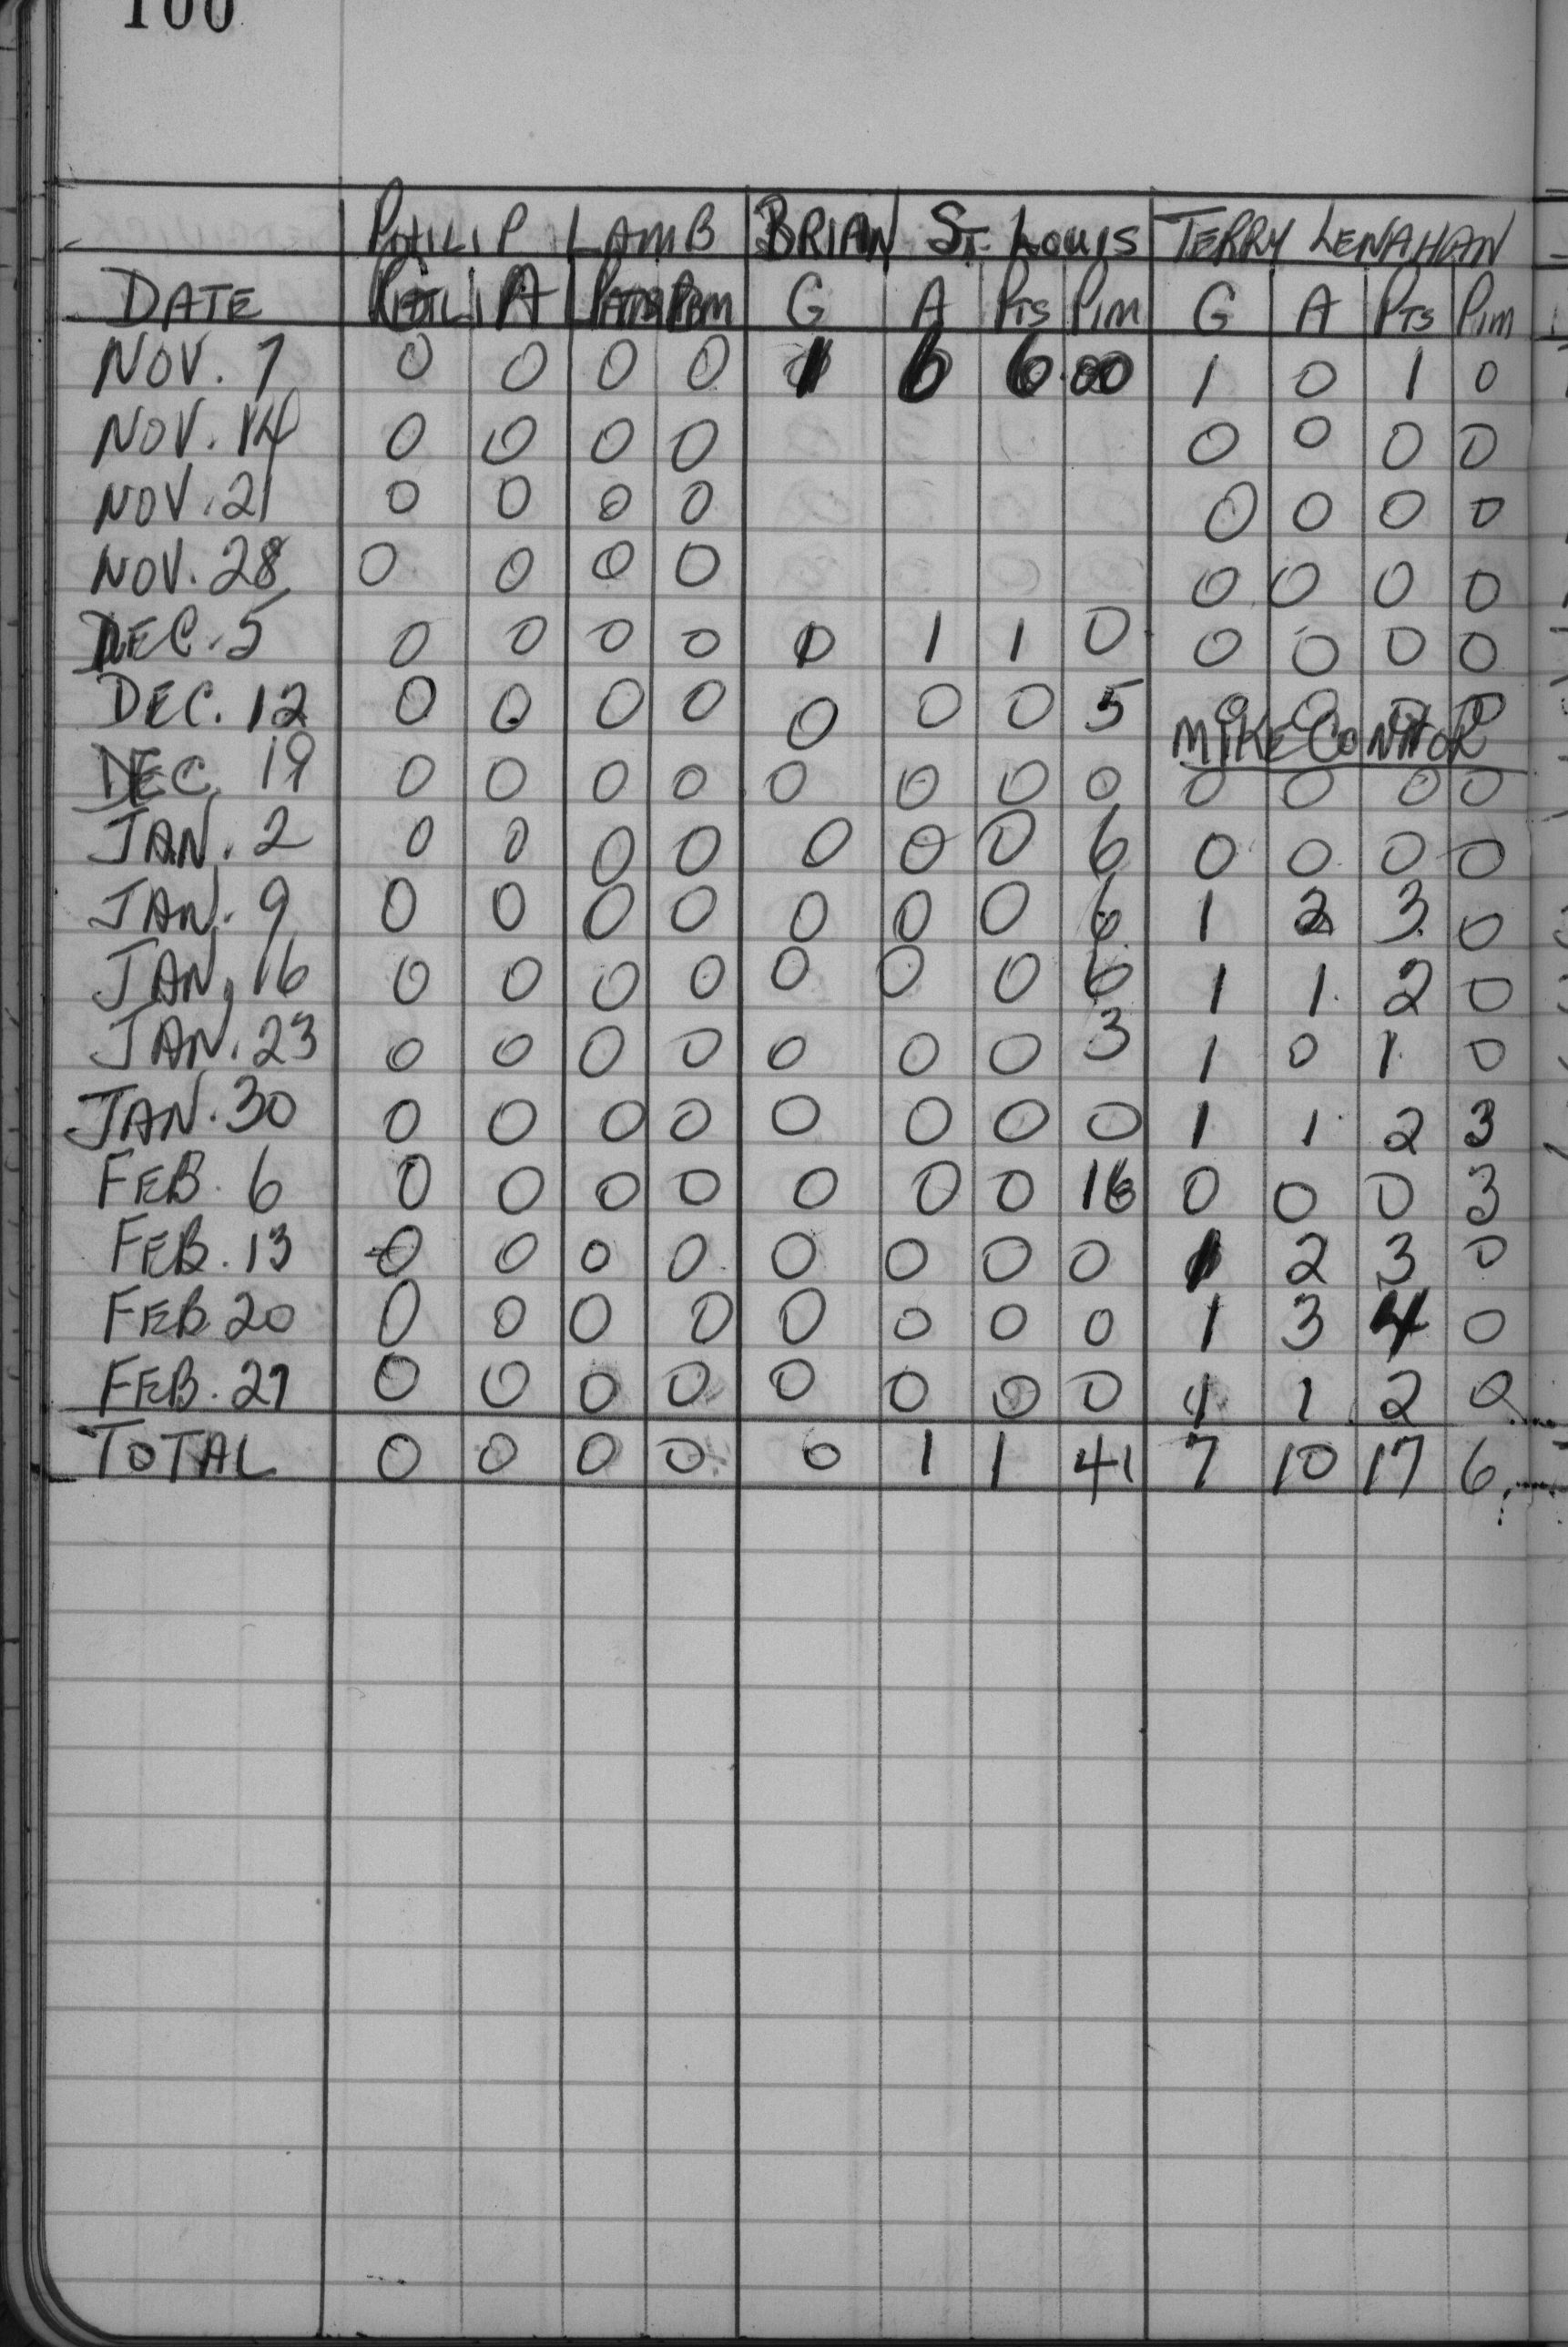 100
PHILIP LAMB BRIAN ST. LOUIS TERRY LENAHAN
DATE A G A PTS PIM G A PTS PIM
NOV. 7 0 0 0 0 1 6 6 00 1 0 1 0
NOV. 14 0 0 0 0 0 0 0 0
NOV. 21 0 0 0 0 0 0 0 0
NOV. 28 0 0 0 0 0 0 0 0
DEC. 5 0 0 0 0 0 1 1 0 0 0 0 0
DEC. 12 0 0 0 0 0 0 0 5 0 0 0 0
MIKE CONNOR
DEC. 19 0 0 0 0 0 0 0 0 0 0 0 0
JAN. 2 0 0 0 0 0 0 0 6 0 0 0 0
JAN. 9 0 0 0 0 0 0 0 6 1 2 3 0
JAN. 16 0 0 0 0 0 0 0 6 1 1 2 0
JAN. 23 0 0 0 0 0 0 0 3 1 0 1 0
JAN. 30 0 0 0 0 0 0 0 0 1 1 2 3
FEB. 6 0 0 0 0 0 0 0 16 0 0 0 3
FEB. 13 0 0 0 0 0 0 0 0 1 2 3 0
FEB. 20 0 0 0 0 0 0 0 0 1 3 4 0
FEB. 27 0 0 0 0 0 0 0 0 1 1 2 0
TOTAL 0 0 0 0 0 1 1 41 7 10 17 6